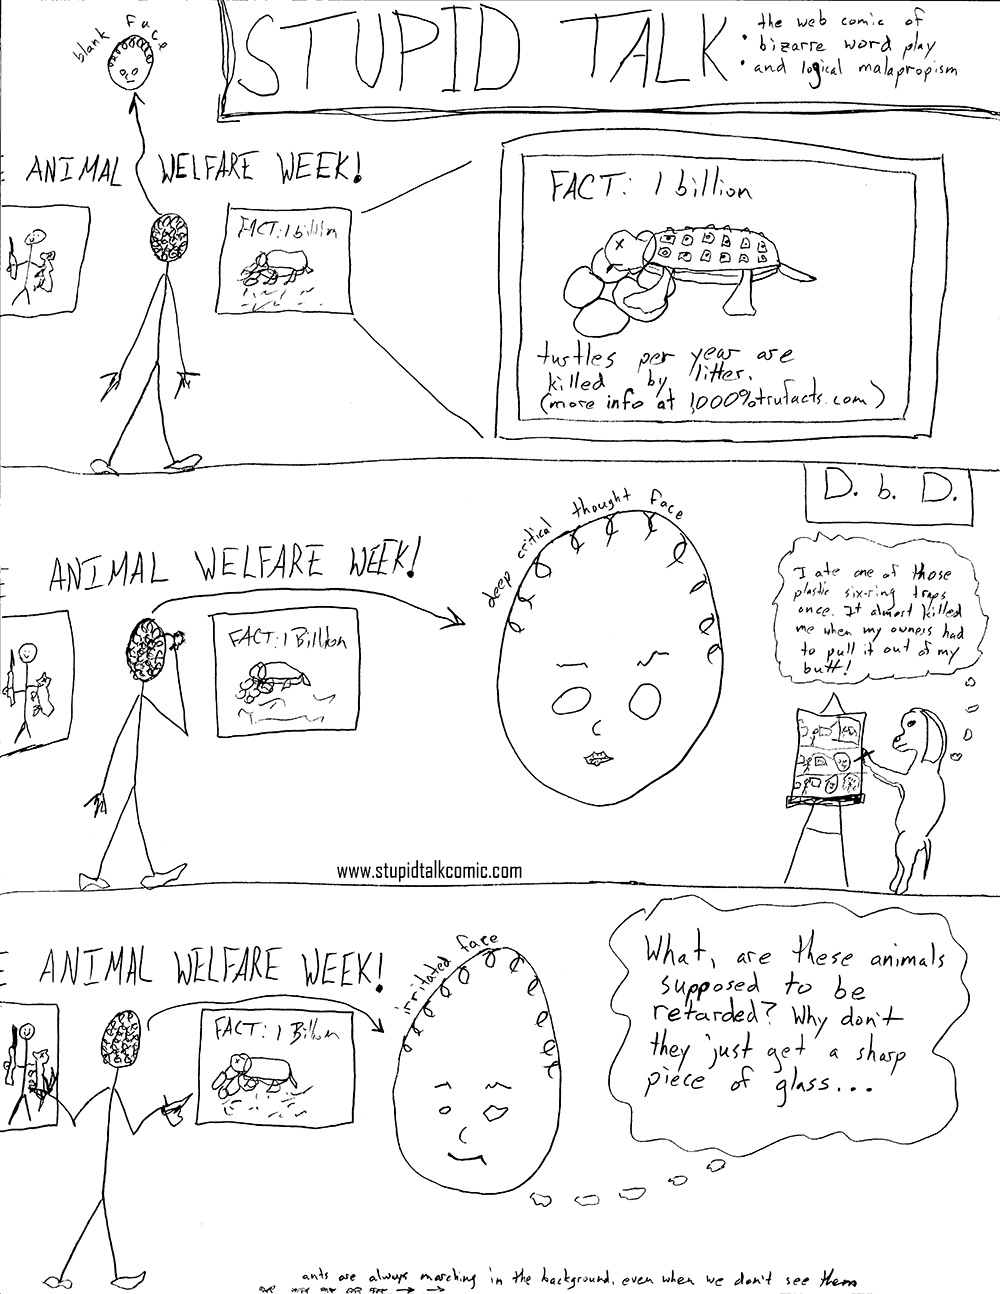 blank face
STUPID TALK
the web comic of
• bizarre word play
• and logical malapropism
E ANIMAL WELFARE WEEK!
FACT: 1 billion
FACT: 1 billion
turtles per year are
killed by litter.
(more info at 1,000%trufacts.com)
D. b. D.
deep critical thought face
E ANIMAL WELFARE WEEK!
FACT: 1 Billion
I ate one of those
plastic six-ring traps
once. It almost killed
me when my owners had
to pull it out of my
butt!
www.stupidtalkcomic.com
irritated face
E ANIMAL WELFARE WEEK!
FACT: 1 Billion
What, are these animals
supposed to be
retarded? Why don't
they just get a sharp
piece of glass...
ants are always marching in the background, even when we don't see them